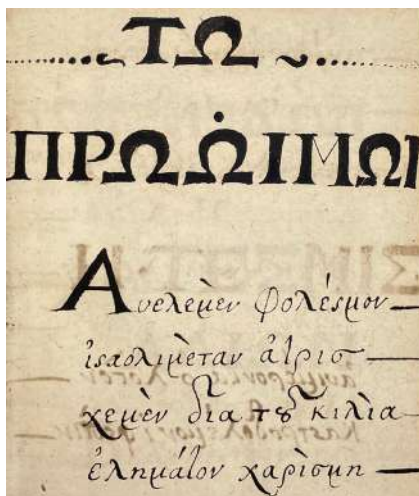 ΤΩ
ΠΡΩΩ̇ΙΜΩ
Αυελεμὲν Φολέσμον
ἰσαολιμὲταν ἀϊρισ
χεμὲν δία τȣ̃ κιλία
ἐλημάϊον χαρίσμη